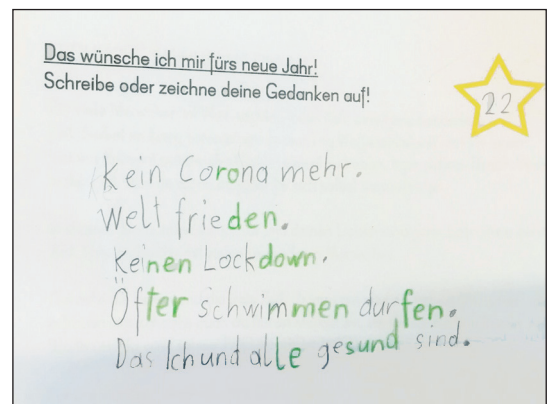 Das wünsche ich mir fürs neue Jahr!
Schreibe oder zeichne deine Gedanken auf!
22
Kein Corona mehr.
Welt frieden.
Keinen Lockdown.
Öfter schwimmen durfen.
Das Ich und alle gesund sind.